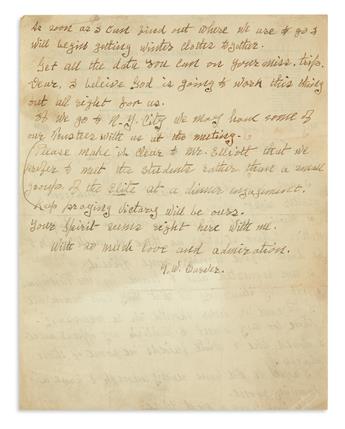 As soon as I can find out where we are to go I
will begin getting winter clothes together.
Get all the data you can on your miss. trip.
Dear, I beleive God is going to work this thing
out all right for us.
If we go to N.Y. City we may have some of
our trustees with us at the meeting.
Please make it clear to Mr. Elliott that we
prefer to meet the students rather than a small
group of the Elite at a dinner engagement.
Keep praying victory will be ours.
Your Spirit seems right here with me.
With so much love and admiration.
G. W. Carver.